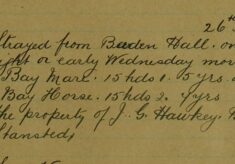 26th
Strayed from Baden Hall. on
night or early Wednesday mor
Bay Mare. 15 hds 1. 5 yrs.
Bay Horse. 15 hds 2. 4 yrs
the property of J. G. Hawkey.
Stansteds